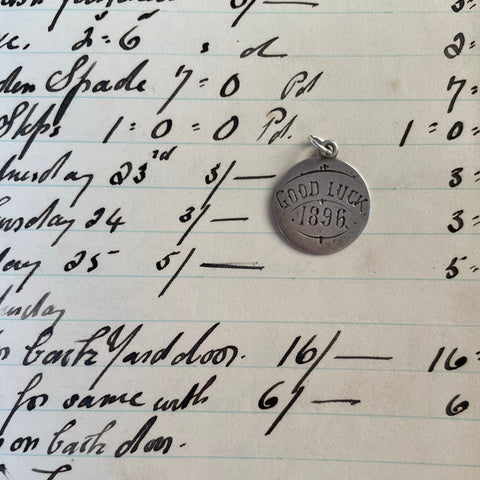 6/— 3=
2=6 s d 2=
den Spade 7=0 Pd 7=
1=0=0 Pd. 1=0=
GOOD LUCK
1896
nesday 23rd 3/— 3=
ursday 24 3/— 3=
day 25 5/— 5=
urday
back Yard door. 16/— 16=
for same with 6/— 6
on back door.